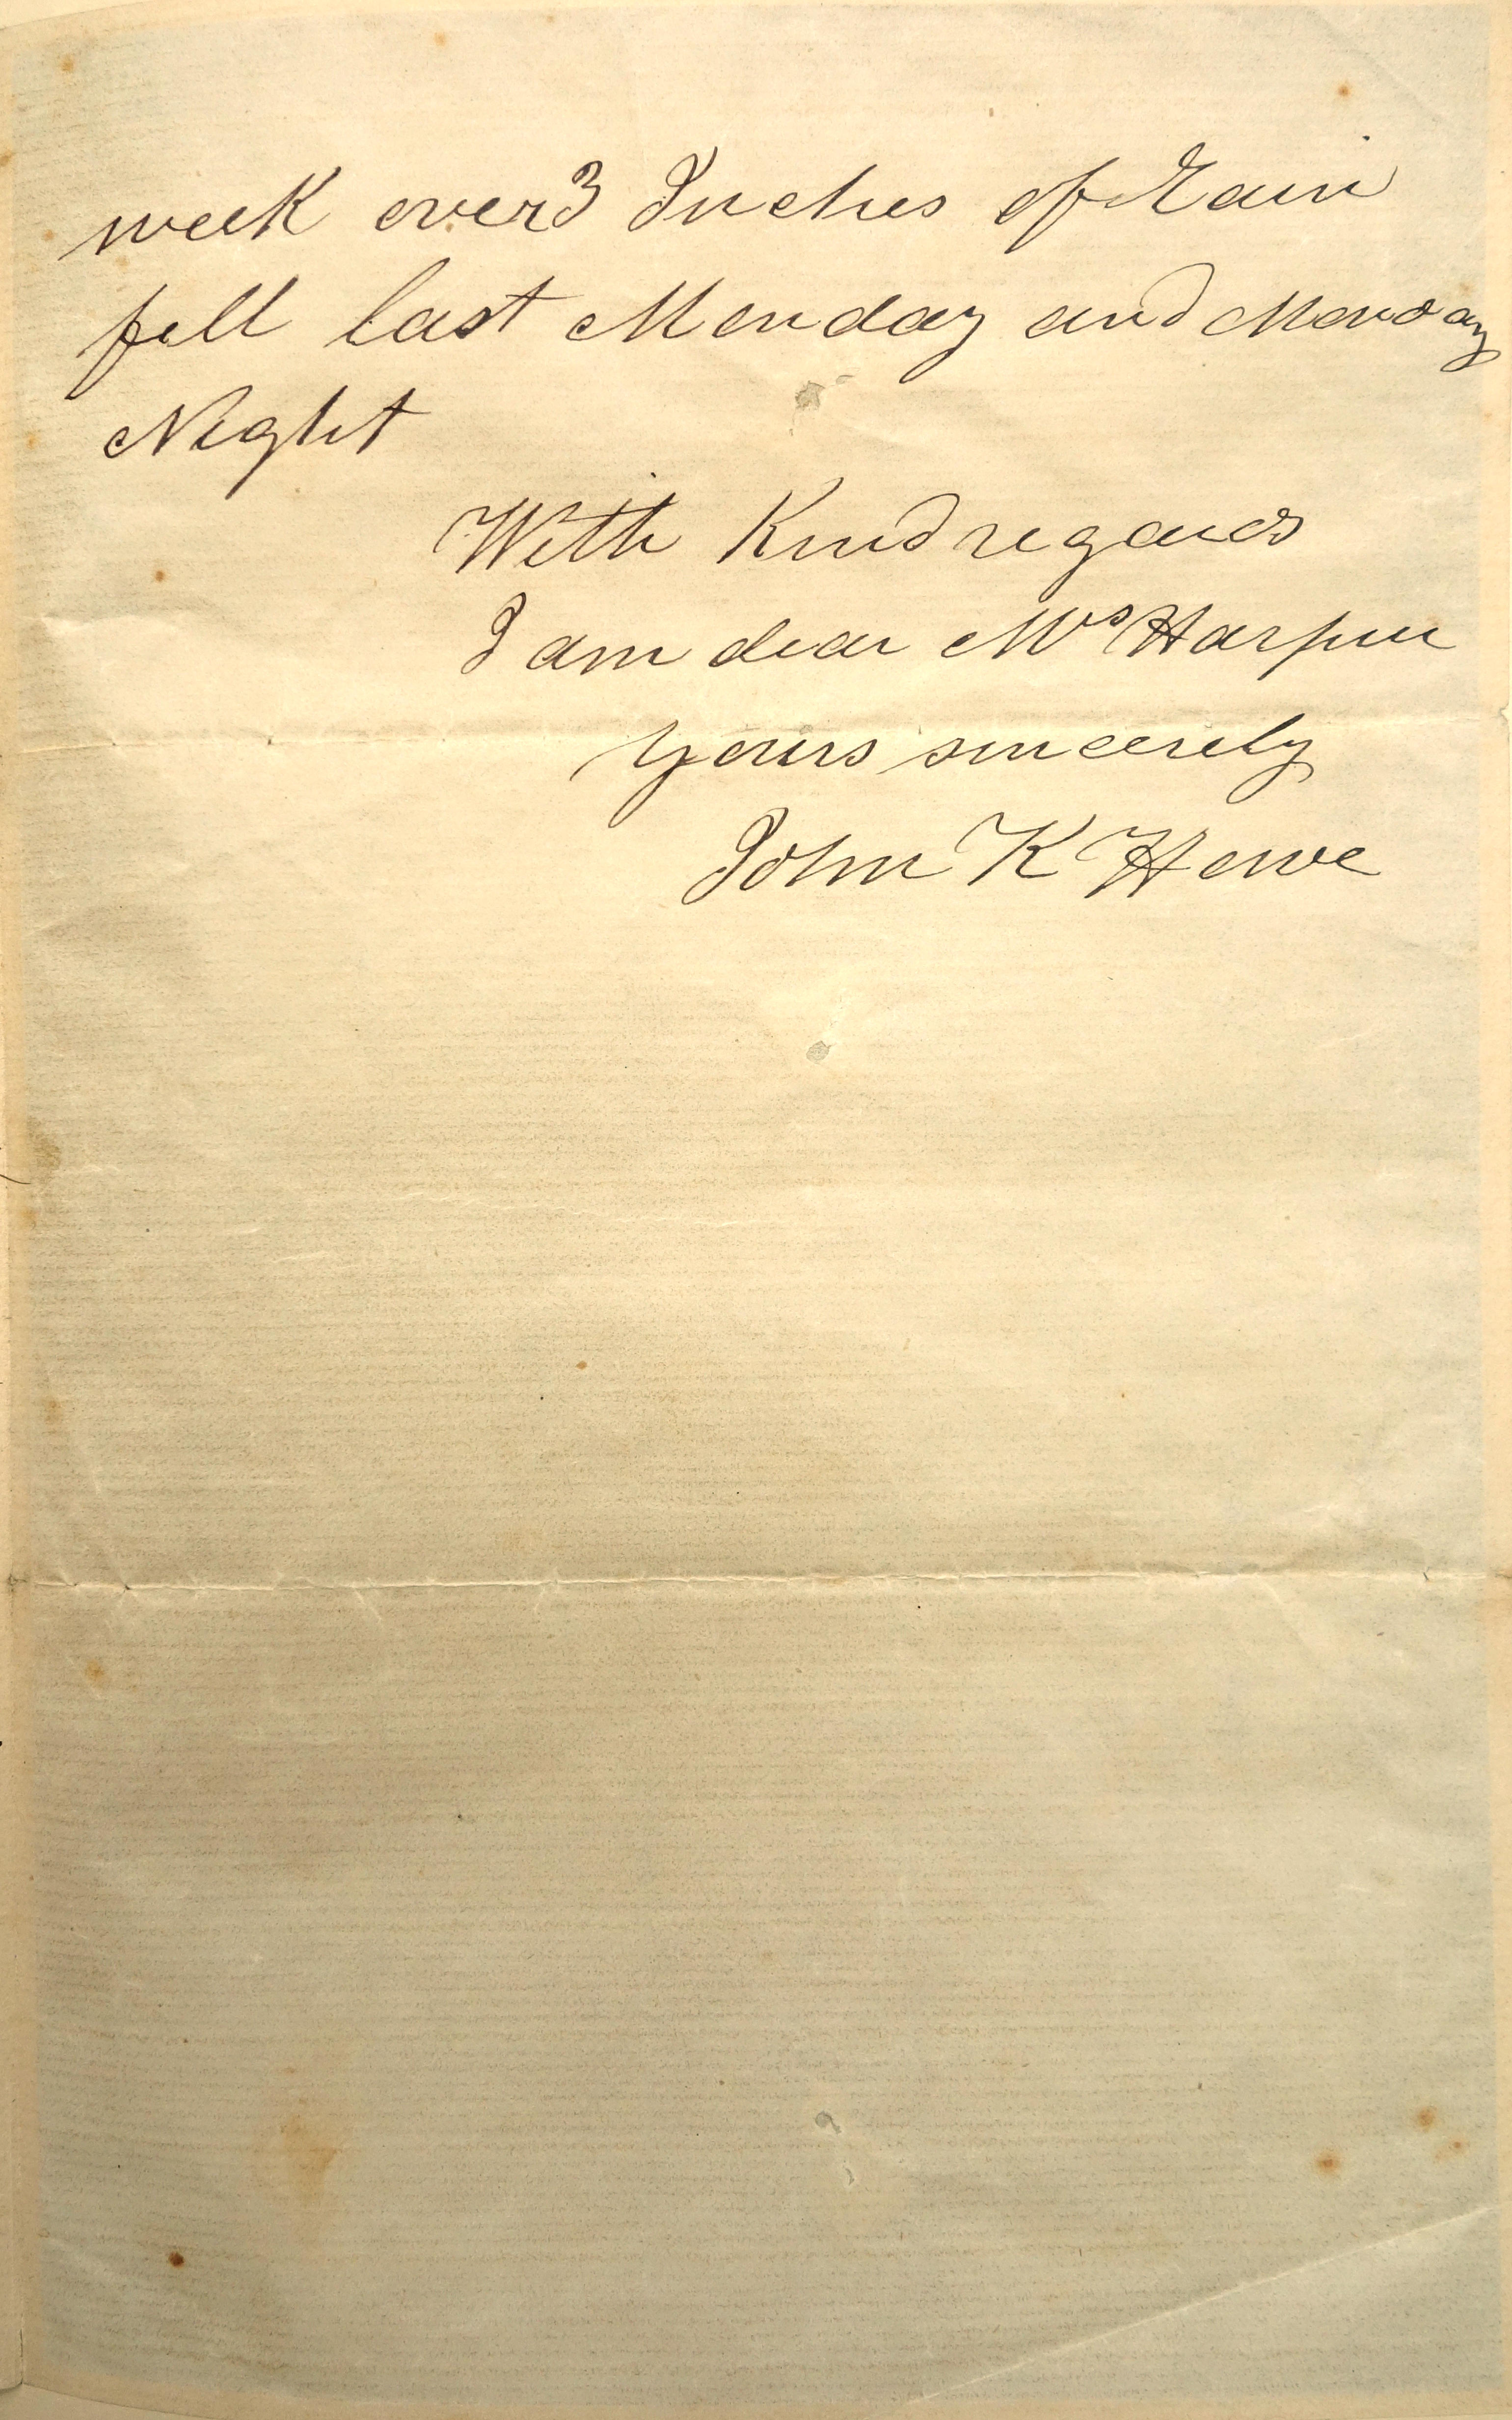 week over 3 Inches of Rain
fell last Monday and Monday
Night
With Kind regards
I am dear Mrs Harper
Yours sincerely
John K Howe